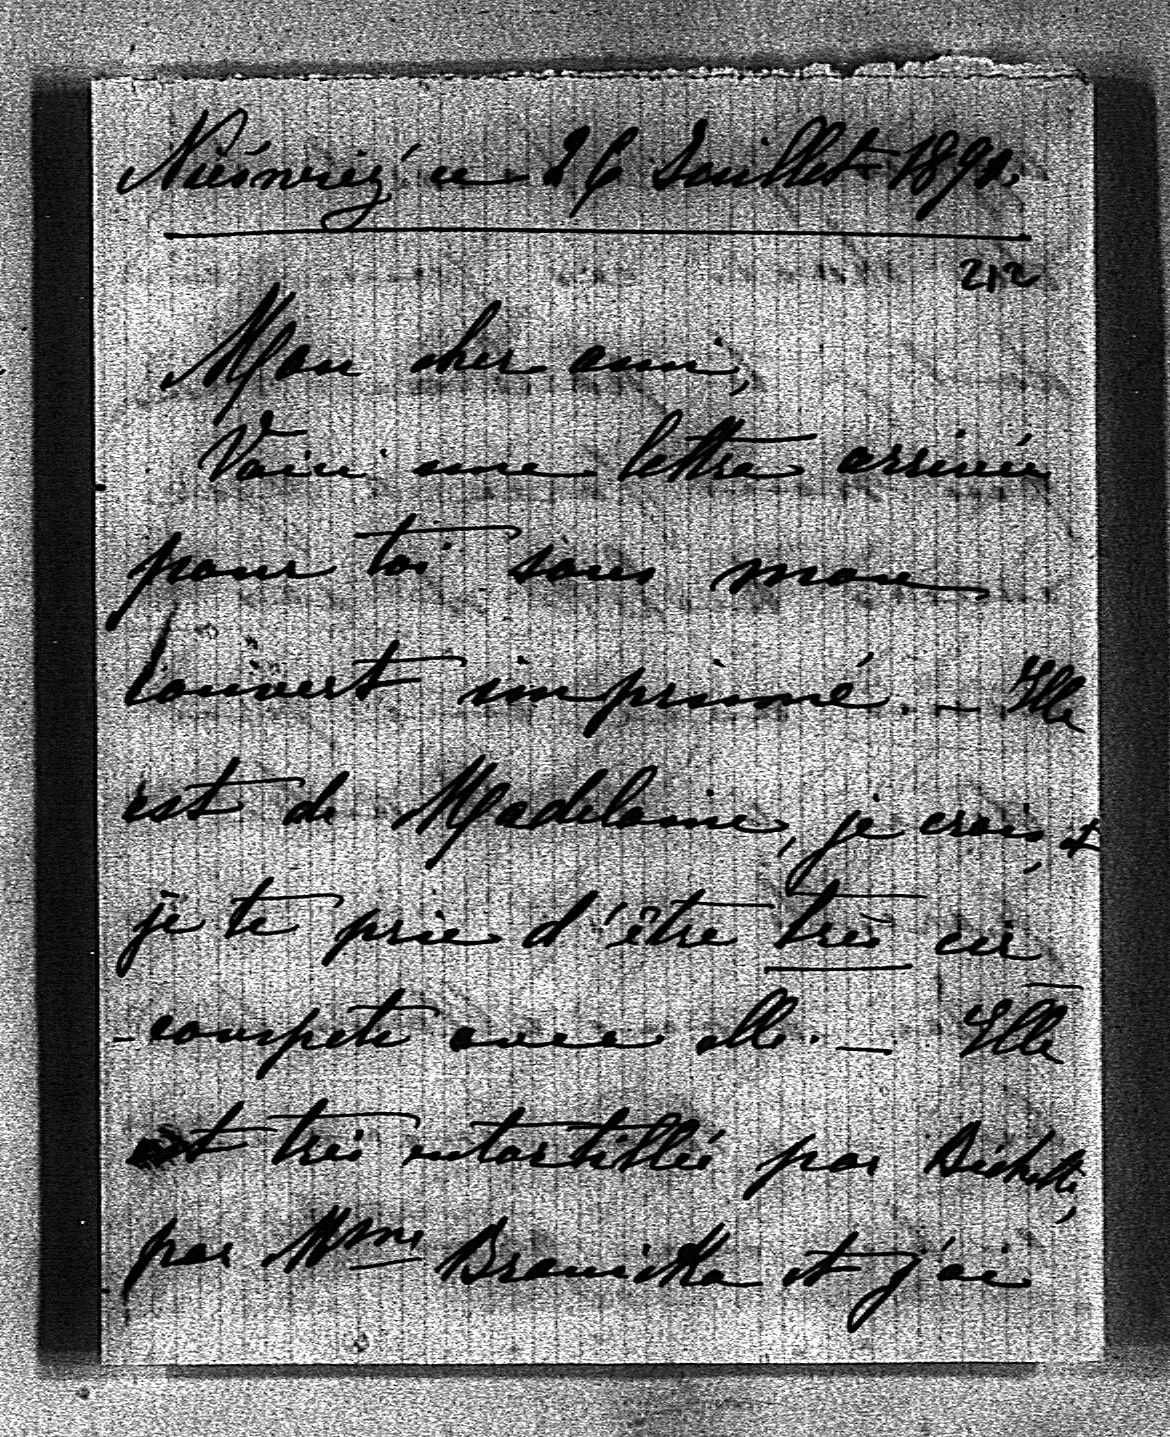 Nieśwież ce 26 Juillet 1891.
212
Mon cher ami,
Voici une lettre arrivée
pour toi sous mon
couvert imprimé. — Elle
est de Madelaine, je crois, &
je te prie d'être très cir
-conspecte avec elle. — Elle
est très entortillée par Bichette,
par Mme Branicka et j'ai